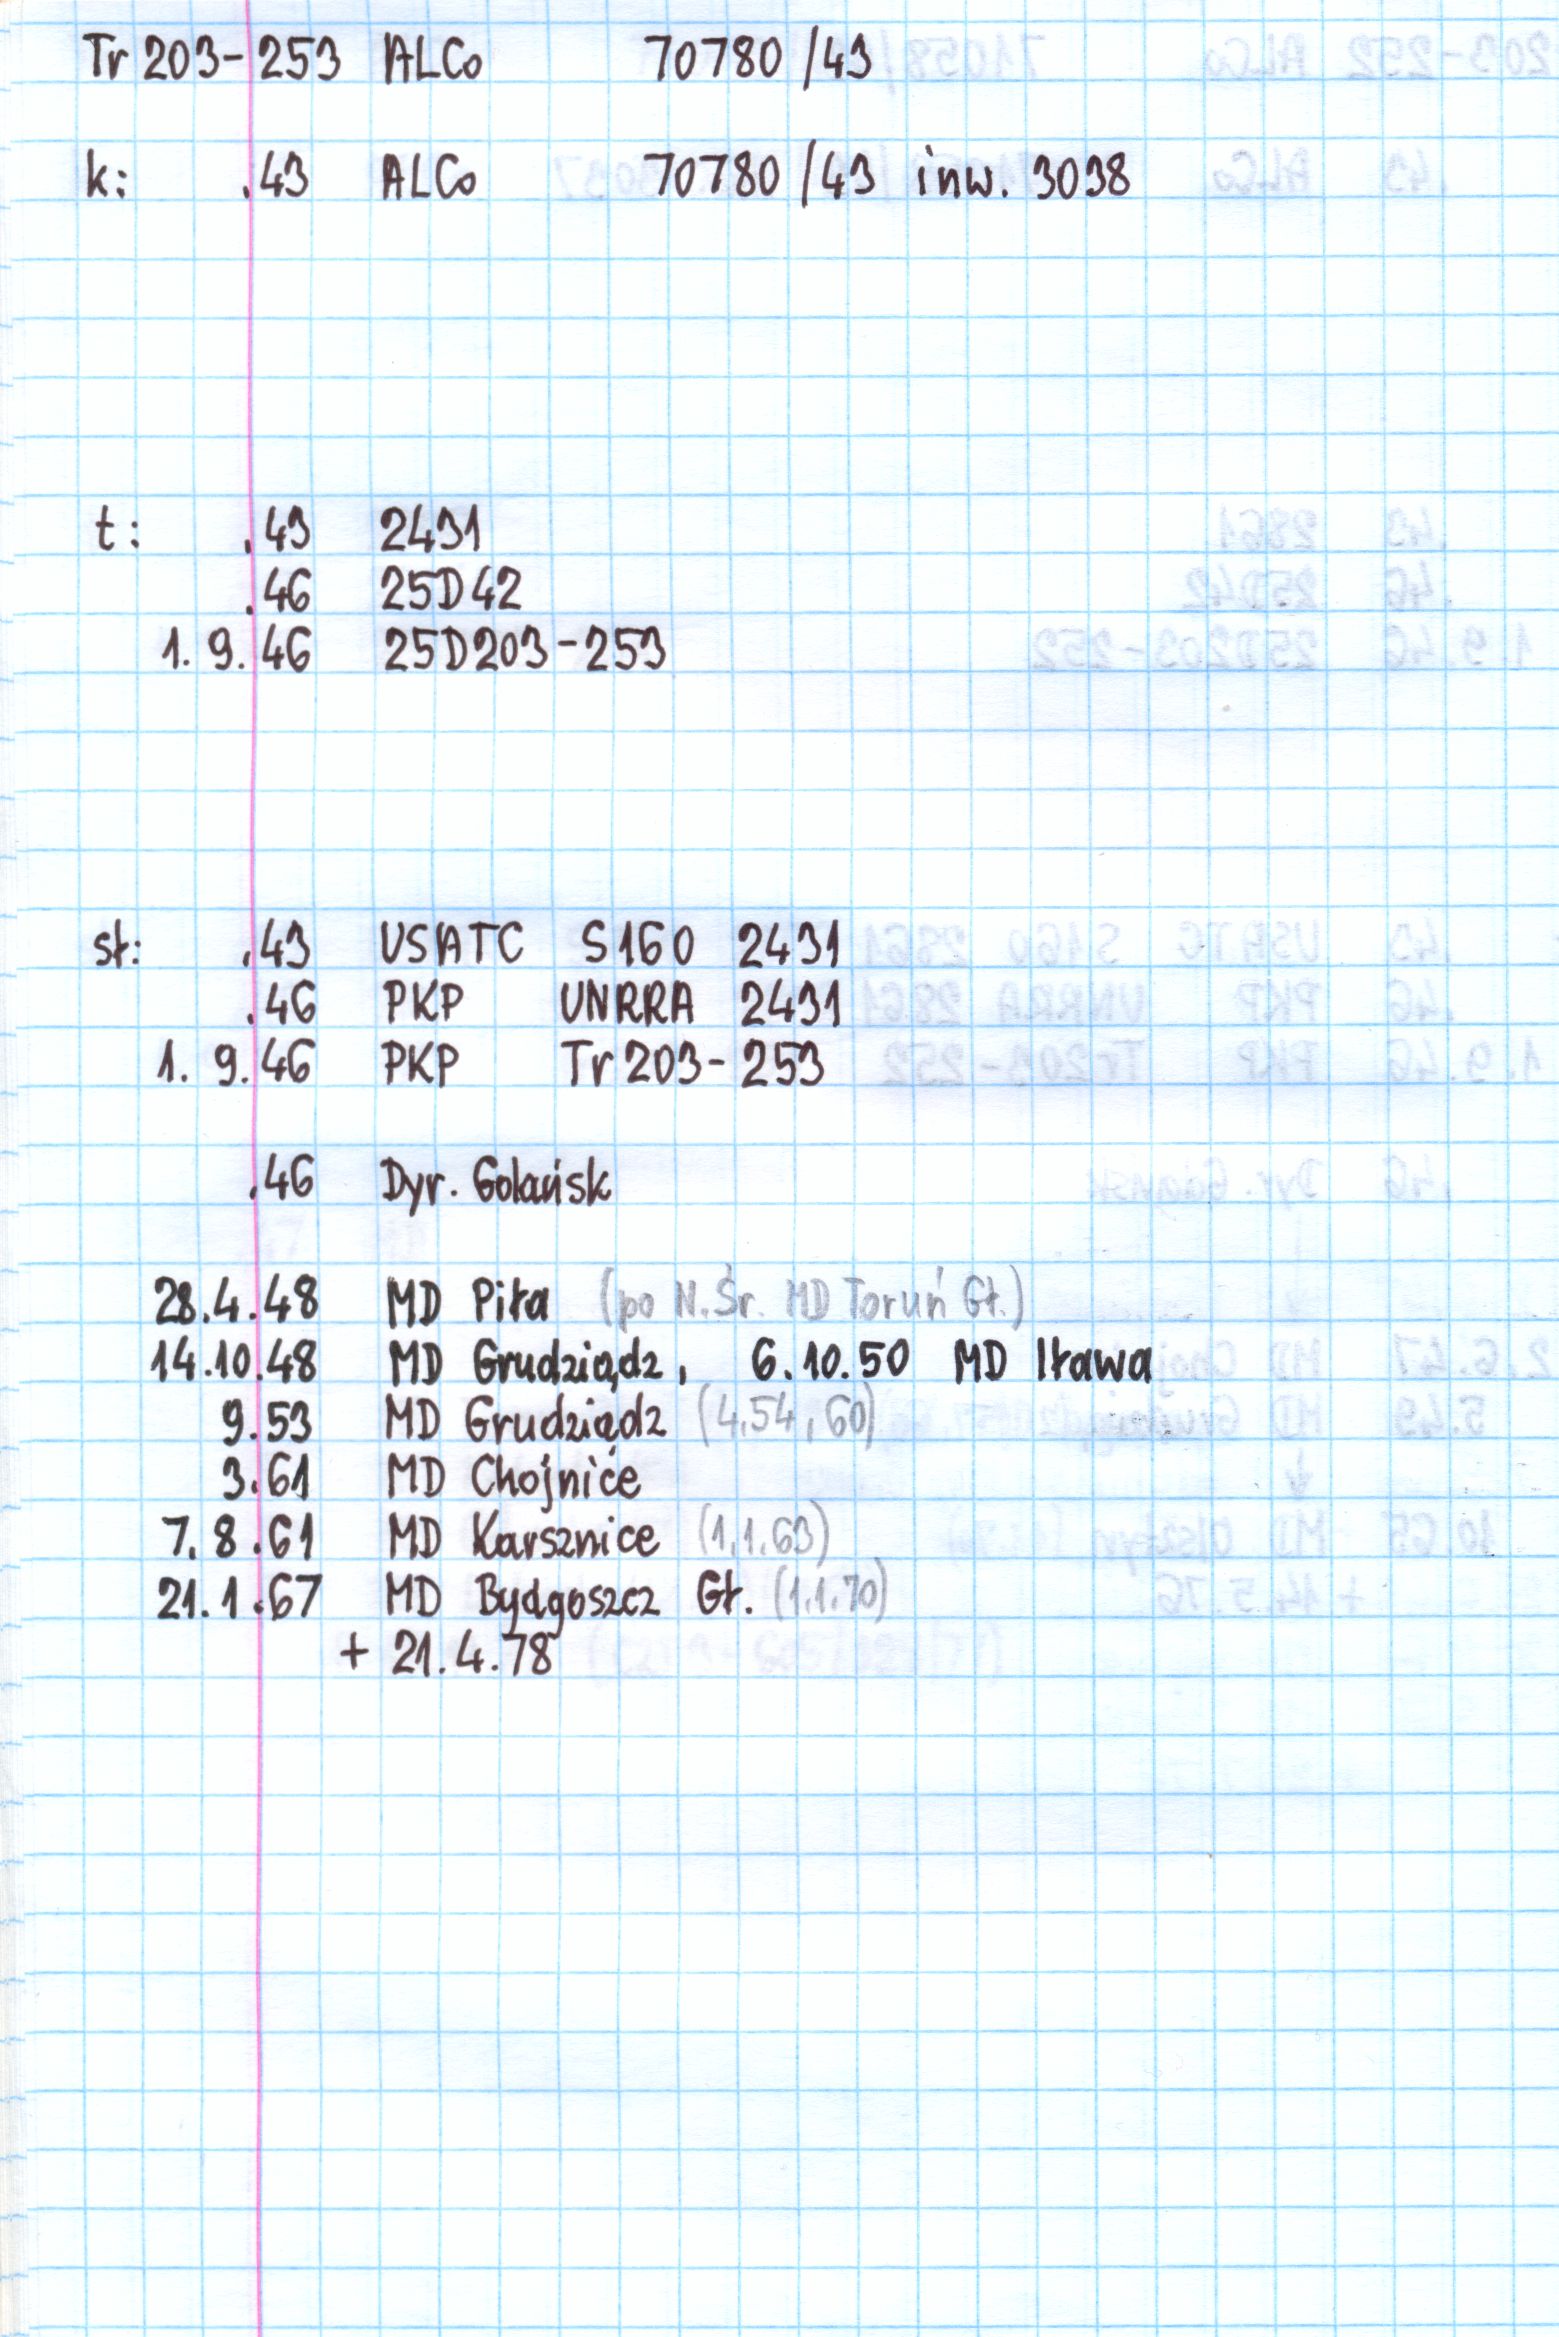 Tr 203-253 ALCo 70780/43
k: .43 ALCo 70780/43 inw. 3038
t: .43 2431
.46 25D42
1. 9. 46 25D203-253
st: .43 USATC S160 2431
.46 PKP UNRRA 2431
1. 9. 46 PKP Tr 203-253
.46 Dyr. Gdańsk
28.4.48 MD Piła (po N.Śr. MD Toruń Gł.)
14.10.48 MD Grudziądz, 6.10.50 MD Iława
9.53 MD Grudziądz (4.54, 60)
3.61 MD Chojnice
7.8.61 MD Karsznice (1.1.63)
21.1.67 MD Bydgoszcz Gł. (1.1.70)
+ 21.4.78